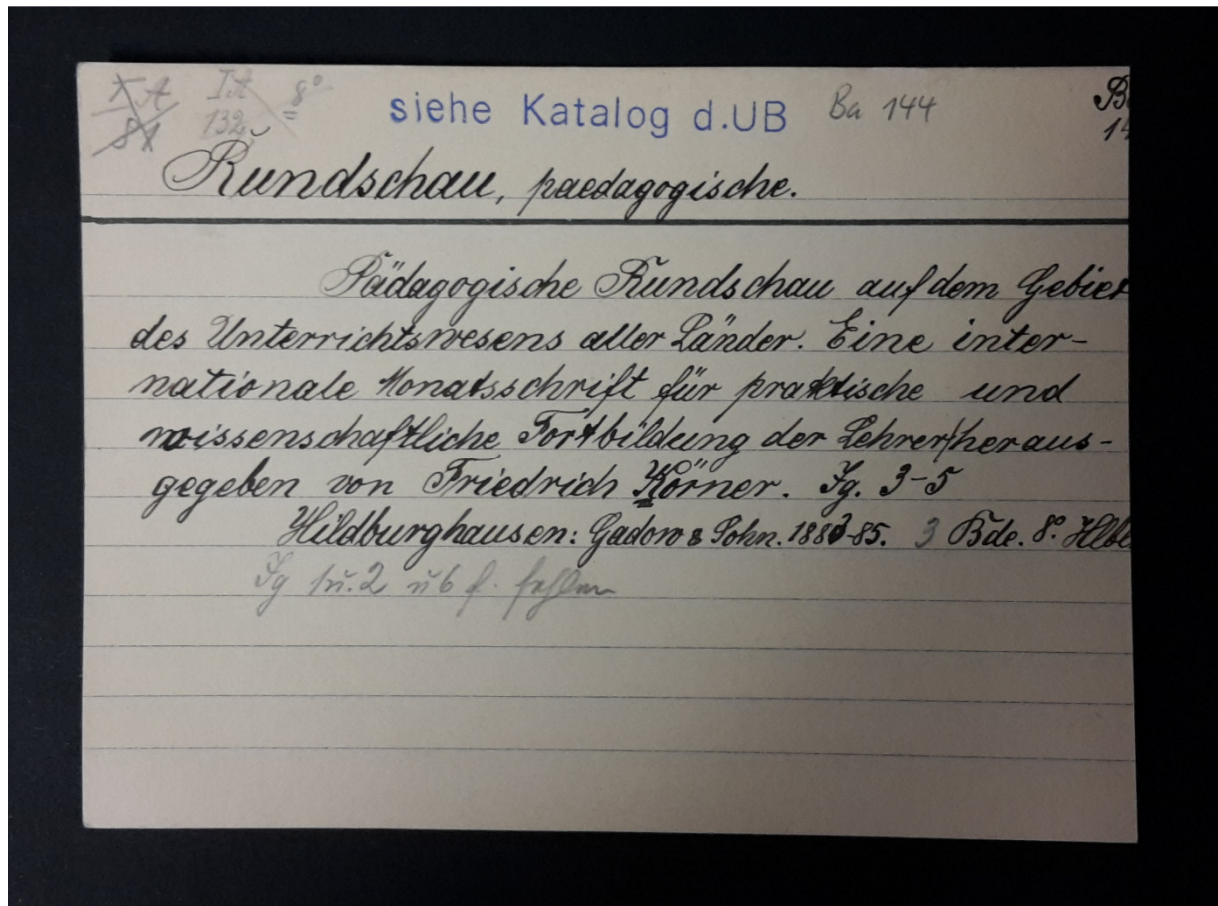 I A 132, 8° siehe Katalog d. UB Ba 144
Rundschau, paedagogische.
Pädagogische Rundschau auf dem Gebiet
des Unterrichtswesens aller Länder. Eine inter-
nationale Monatsschrift für praktische und
wissenschaftliche Fortbildung der Lehrer/heraus-
gegeben von Friedrich Körner. Jg. 3-5
Hildburghausen: Gadow & Sohn. 1883-85. 3 Bde. 8°.
Jg 1 u. 2 u 6 f. fehlen